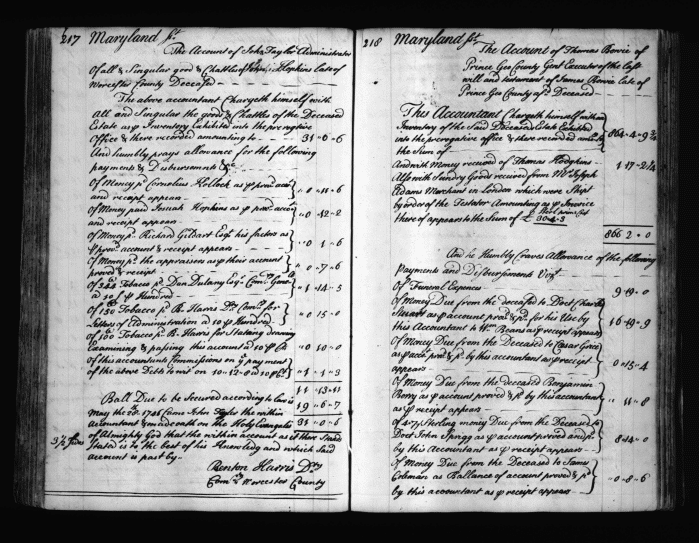 217 Maryland ſt.
The Account of John Taylor Administrator
of all & Singular good & Chattles of John Hopkins late of
Worcester County Deceased
The above accountant Chargeth himself with
All and Singular the goods & Chattles of the Deceased
Estate as ꝑ Inventory Exhibited into the prerogative
Office & there recorded amounting to 31 " 0 " 6
And humbly prays allowance for the following
payments & Disbursements &c
Of Money pd Cornelius Hollock as ꝑ proved acct
and receipt appear " 0 " 11 " 6
Of Money paid Josiah Hopkins as ꝑ proved acct
and receipt appear " 0 " 12 " 2
Of Money pd Richard Gilbart Esqr his factor as
ꝑ proved account & receipt appears " 0 " 1 " 6
Of Money pd the appraisers as ꝑ their account
proved & receipt " 0 " 7 " 6
Of 344 Tobacco pd Dan Dulany Esqr Comy Genl
a 10 ꝑ Hundred " 1 " 14 " 5
Of 150 Tobacco pd B. Harris Dy Comy for
Letters of Administration a 10 ꝑ Hundred " 0 " 15 " 0
Of 100 Tobacco pd B. Harris for Stating drawing
Examining & passing this account a 10 ꝑ Ct " 0 " 10 " 0
of this accountants Commissions on ye payment
of the above Debts to wit on 10 " 12 " 0 a 10 ꝑ Ct " 1 " 1 " 3
11 " 13 " 11
Ball Due to be Secured according to law is 19 " 6 " 7
31 " 0 " 6
May the 1746 Came John Taylor the within
accountant & made oath on the Holy Evangels
3½ sides of Almighty God that the within account as it there Stand
Stated is to the best of his Knowledg and which Said
account is past by
Benton Harris Dy
Comy Worcester County
218 Maryland ſt.
The Account of Thomas Bowie of
Prince Geo County Gent Executor of the last
will and testament of James Bowie late of
Prince Geo County afsd Deceased
This Accountant Chargeth himself with an
Inventory of the Said Deceased Estate Exhibited
into the prerogative office & there recorded
the Sum of 864 " 4 " 9 ¾
And with Money received of Thomas Hodgkins
Also with Sundry Goods received from Mr Joseph
Adams Merchant in London which were Shipt
by order of the Testator Amounting as ꝑ Invoice
thereof appears to the Sum of £ 30.4.3 1 17 " 2¼
866 2 " 0
And he Humbly Craves Allowance of the following
Payments and Disbursements Vizt
Of Funeral Expences 9 " 19 " 0
Of Money Due from the deceased to Doct Charles
Steuart as ꝑ account proved & pd for his Use by
this Accountant to Wm Beans as ꝑ receipt appears 16 " 19 " 9
Of Money Due from the Deceased to Cesar Grace
as ꝑ acct proved & pd by this accountant as ꝑ receipt
appears 0 " 15 " 4
Of Money Due from the deceased Benjamin
Berry as ꝑ account proved & pd by this accountant
as ꝑ receipt appear " 11 " 8
Of Sterling money Due from the Deceased to
Doct John Sprigg as ꝑ account proved and pd
by this Accountant as ꝑ receipt appears 8 " 14 " 0
Of Money Due from the Deceased to James
Coleman as Ballance of account proved & pd
by this accountant as ꝑ receipt appear " 0 " 8 " 6